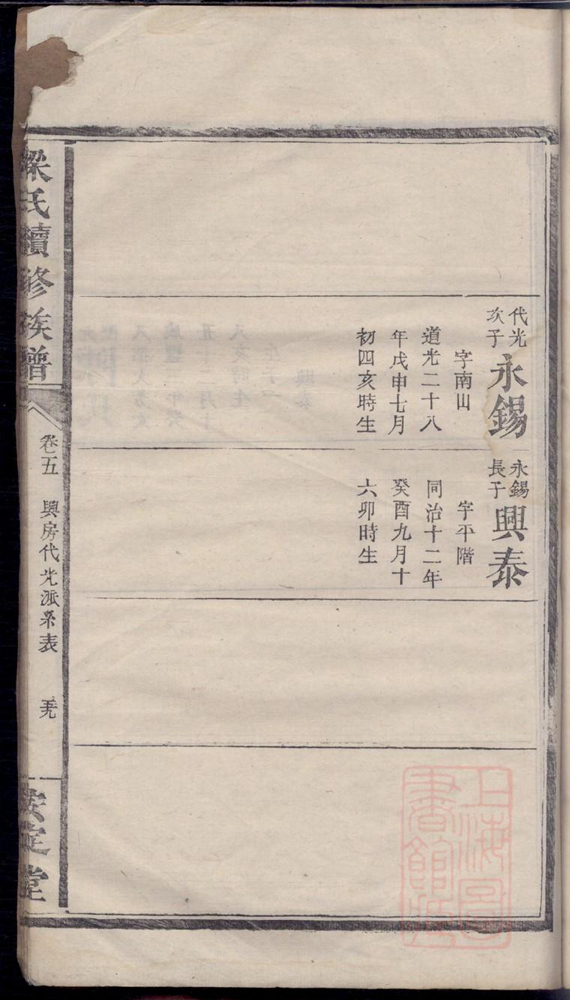 代光
次子
永錫
字南山
道光二十八
年戊申七月
初四亥時生
永錫
長子
興泰
字平階
同治十二年
癸酉九月十
六卯時生
梁氏續修族譜
卷五 興房代光派系表
安定堂
上海圖
書館藏